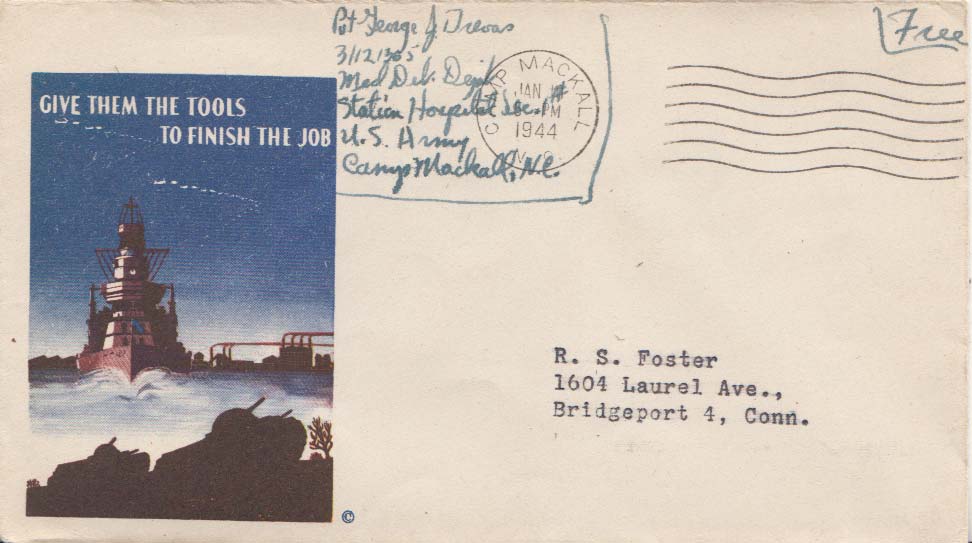 Pvt George J Trevas
31121365
Med Det.
Station Hospital Sec. 1#
U.S. Army
Camp Mackall, N.C.
Free
CAMP MACKALL
JAN
PM
1944
N.C.
GIVE THEM THE TOOLS
TO FINISH THE JOB
R. S. Foster
1604 Laurel Ave.,
Bridgeport 4, Conn.
©